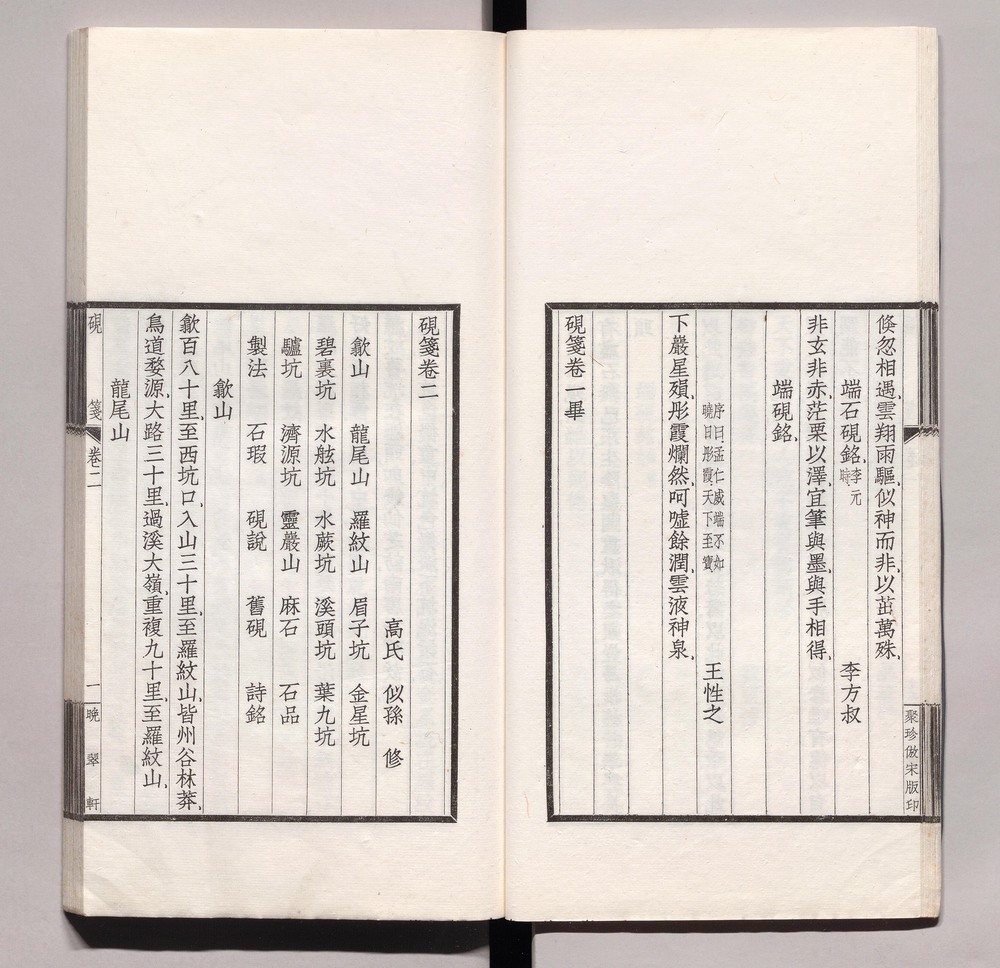 聚珍倣宋版印
倏忽相遇雲翔雨驅似神而非以茁萬殊
端石硯銘李元時 李方叔
非玄非赤茫栗以澤宜筆與墨與手相得
端硯銘
序曰孟仁威端不如
曉日彤霞天下至寶 王性之
下巖星殞彤霞爛然呵噓餘潤雲液神泉
硯箋卷一畢
硯箋卷二
高氏 似孫 修
歙山 龍尾山 羅紋山 眉子坑 金星坑
碧裏坑 水舷坑 水蕨坑 溪頭坑 葉九坑
驢坑 濟源坑 靈巖山 麻石 石品
製法 石瑕 硯說 舊硯 詩銘
歙山
歙百八十里至西坑口入山三十里至羅紋山皆州谷林莽
鳥道婺源大路三十里過溪大嶺重複九十里至羅紋山
龍尾山
硯 箋 卷二 一 晚翠軒